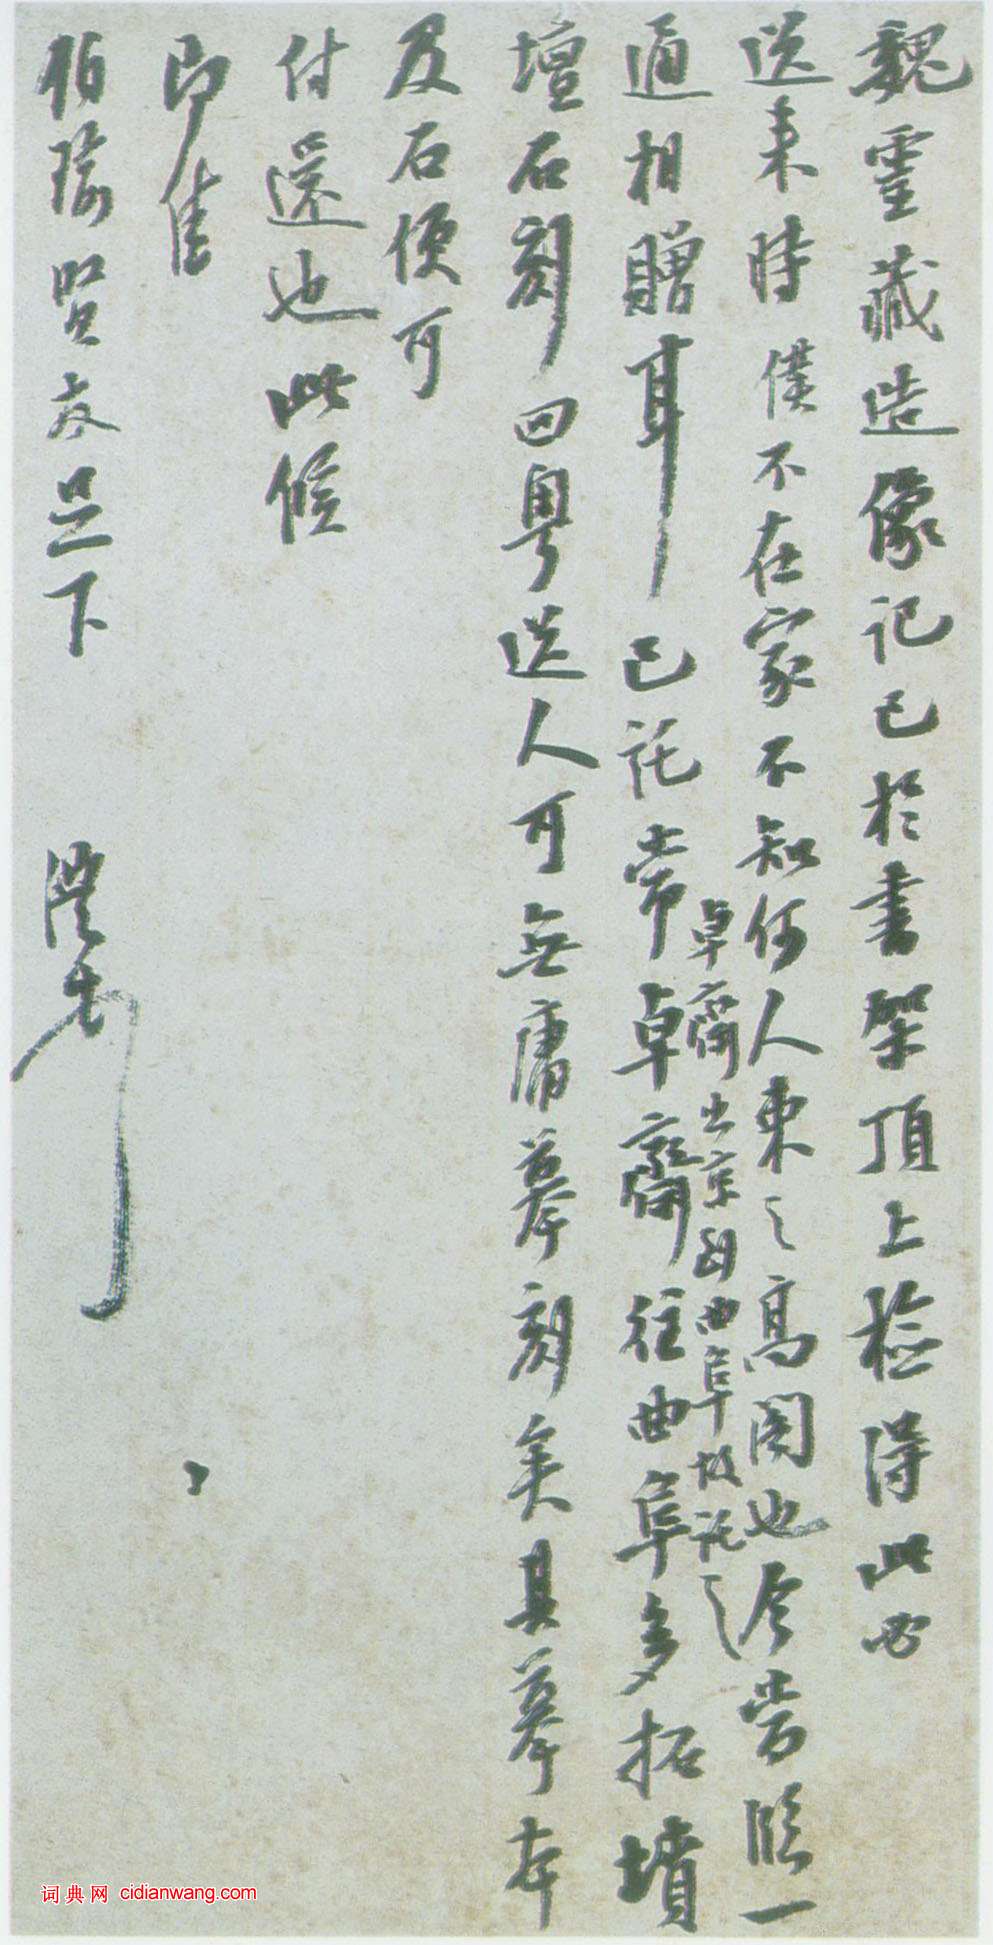 魏靈藏造像記已於書架頂上檢得此必
送来時僕不在家不知何人束之高阁也今當臨一
通相贈耳已託常卓齋往曲阜多拓墳
卓齋出京到曲阜故託之
壇石刻回粤送人可無庸摹刻矣其摹本
及石便可
付還也此候
即佳
伯瑜賢友足下
澧
词典网 cidianwang.com